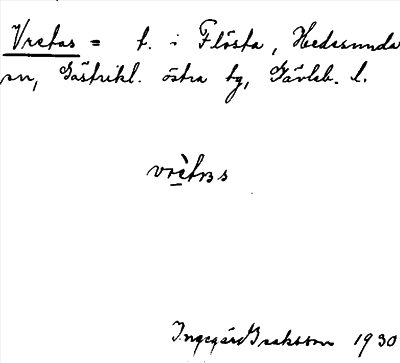 Vretas = t. i Flösta, Hedesunda
sn, Gästrikl. östra tg, Gävleb. l.
Ingegärd Isaksson 1930